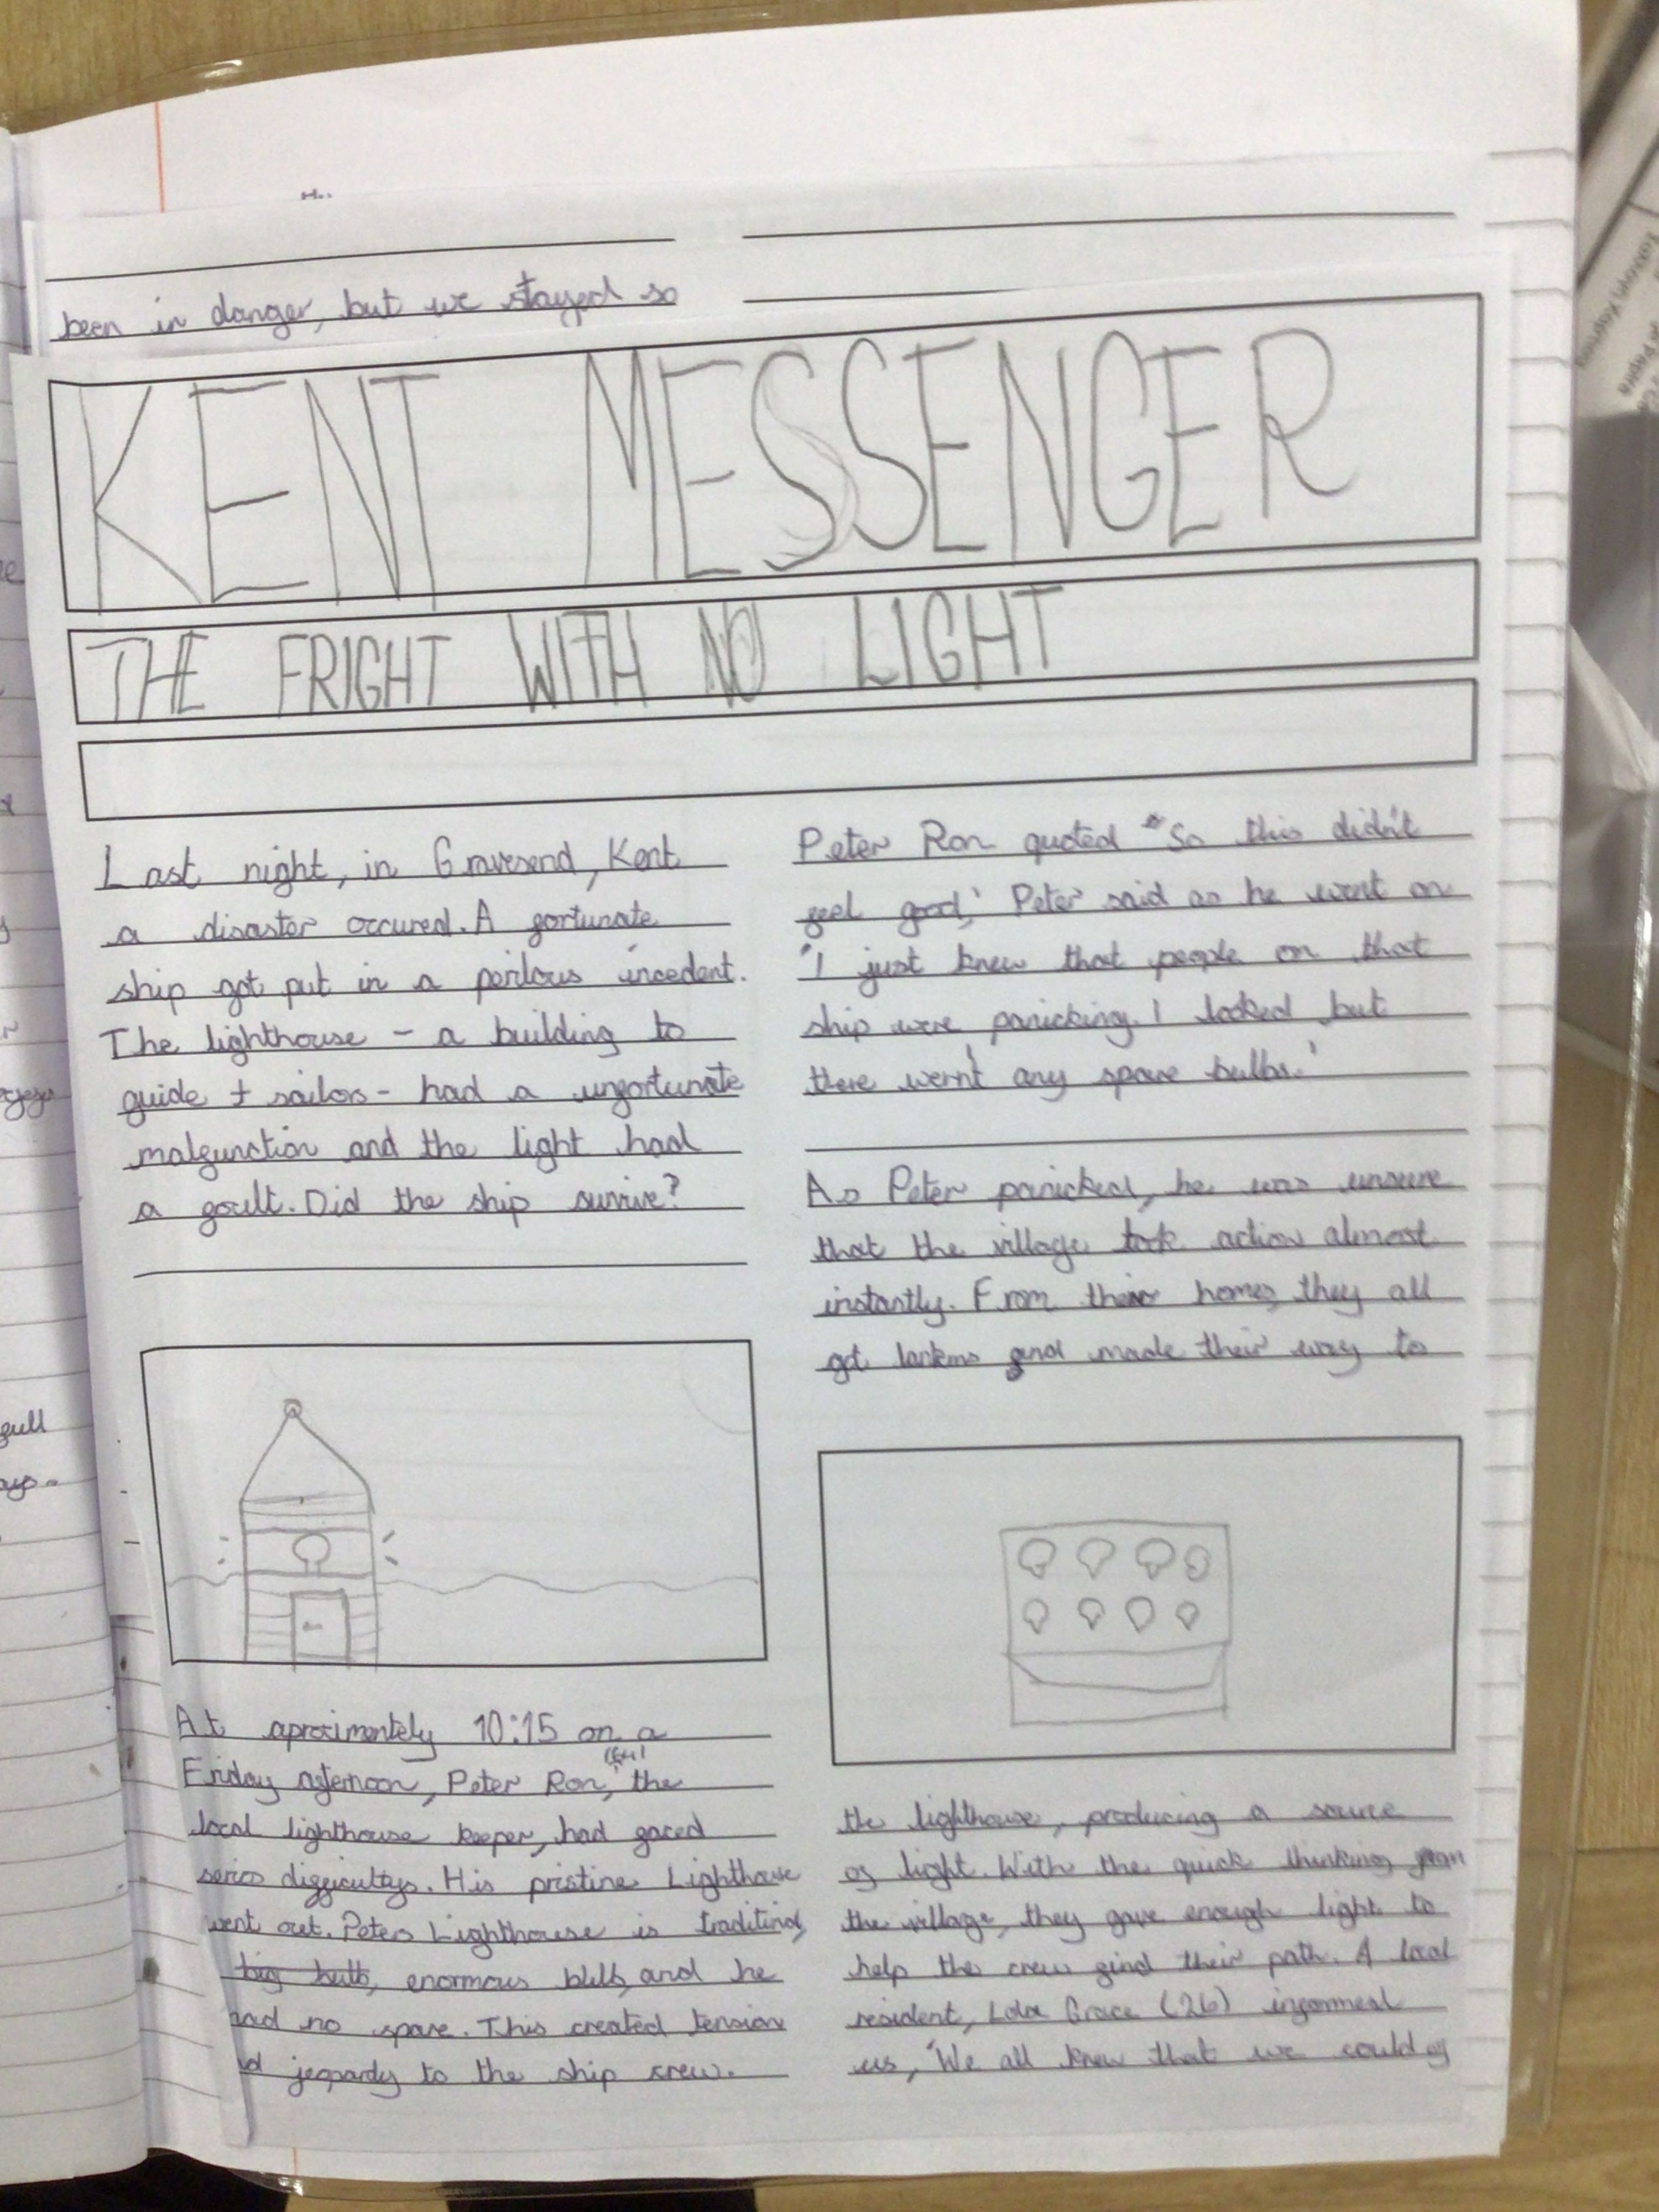 been in danger, but we stayed so
KENT MESSENGER
THE FRIGHT WITH NO LIGHT
Last night, in Gravesend, Kent
a disaster occured. A fortunate
ship got put in a perilous incedent.
The lighthouse - a building to
guide sailors - had a unfortunate
malfunction and the light had
a fault. Did the ship survive?
At aproximentely 10:15 on a
Friday afternoon, Peter Ron, (64) the
local lighthouse keeper, had faced
serios difficultys. His pristine Lighthouse
went out. Peters Lighthouse is traditinol,
big bulb, enormous blub, and he
had no spare. This created tension
d jeopardy to the ship crew.
Peter Ron quoted "So this didn't
feel good,' Peter said as he went on
'I just knew that people on that
ship were panicking. I looked but
there wern't any spare bulbs.'
As Peter panicked, he was unsure
that the village took action almost
instantly. From their homes, they all
got and made their way to
the lighthouse, producing a source
of light. With the quick thinking from
the village, they gave enough light to
help the crew find their path. A local
resident, Lola Grace (26) informed
us, "We all knew that we could of
full